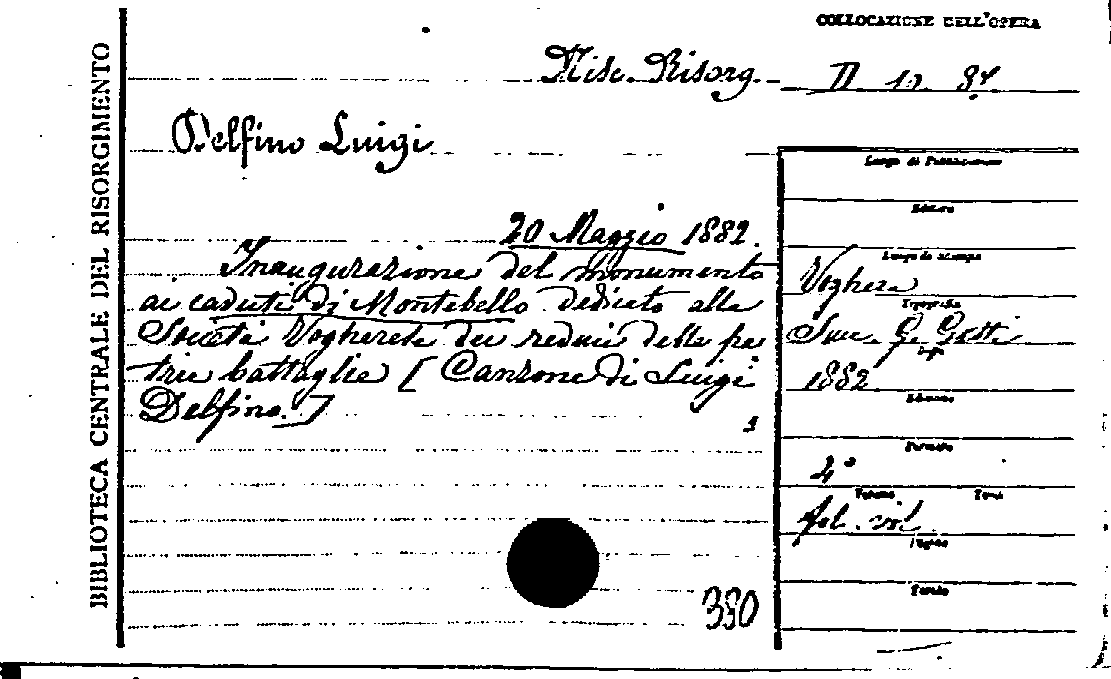 BIBLIOTECA CENTRALE DEL RISORGIMENTO
COLLOCAZIONE DELL'OPERA
Misc. Risorg.
Delfino Luigi
Luogo di Pubblicazione
Editore
20 Maggio 1882.
Inaugurazione del monumento
ai caduti di Montebello dedicato alla
Società Vogherese dei reduci delle pa
trie battaglie [Canzone di Luigi
Delfino.]
Luogo di stampa
Voghera
Tipografia
Succ. G. Gatti
1882
Edizione
Formato
4°
Volume Tomi
fol. vol.
Pagine
Tavole
380